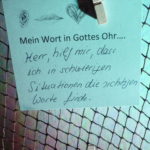 Mein Wort in Gottes Ohr....
Herr, hilf mir, dass
ich in schwierigen
Situationen die richtigen
Worte finde.